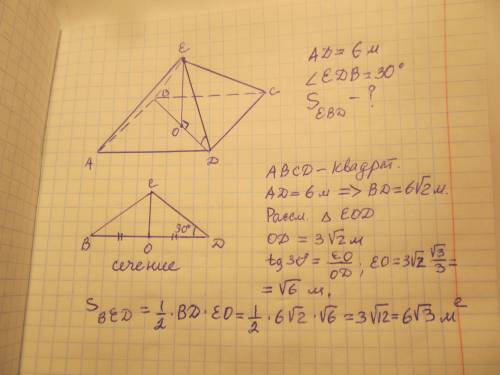 E
B
C
O
A
D
AD = 6 м
∠EDB = 30°
S_EBD - ?
E
30°
B
O
D
сечение
ABCD - квадрат.
AD = 6 м => BD = 6√2 м.
Рассм. Δ EOD
OD = 3√2 м
tg 30° = EO/OD; EO = 3√2 √3/3 =
= √6 м.
S_BED = 1/2 · BD · EO = 1/2 · 6√2 · √6 = 3√12 = 6√3 м²